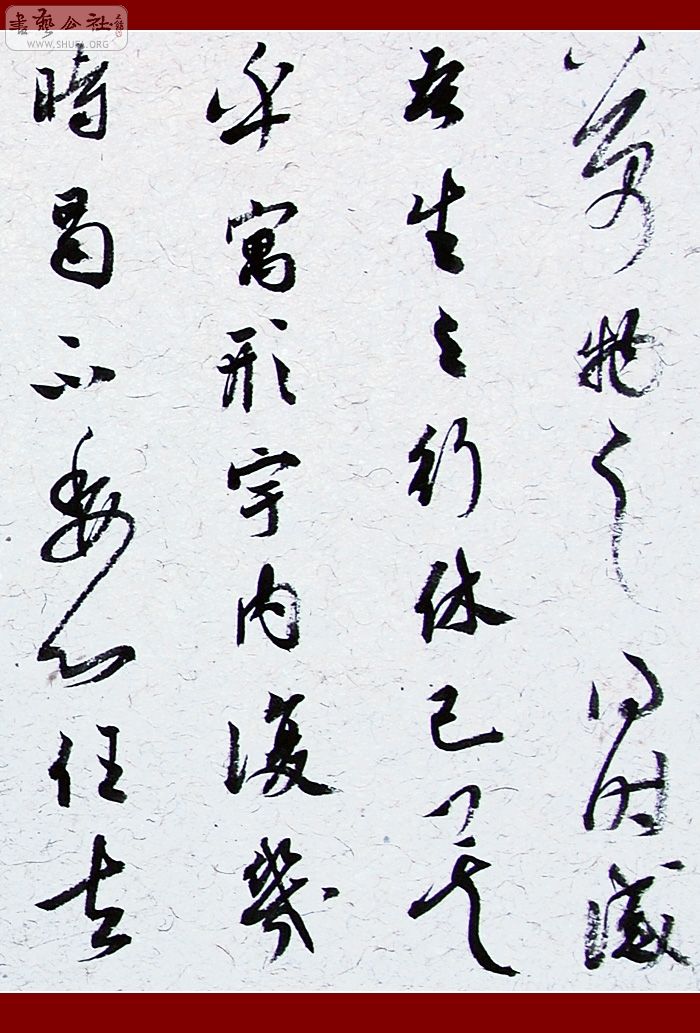 書藝公社
WWW.SHUFA.ORG
萬物之得時感
吾生之行休已矣
乎寓形宇内復幾
時曷不委心任去